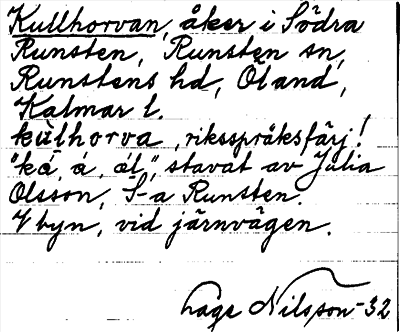 Kullhorvan, åker i Södra
Runsten, Runsten sn,
Runstens hd, Öland,
Kalmar l.
kùlhorva, riksspråksfärj!
"kå, a, ål", stavat av Julia
Olsson, S-a Runsten.
V byn, vid järnvägen.
Låge Nilsson -32